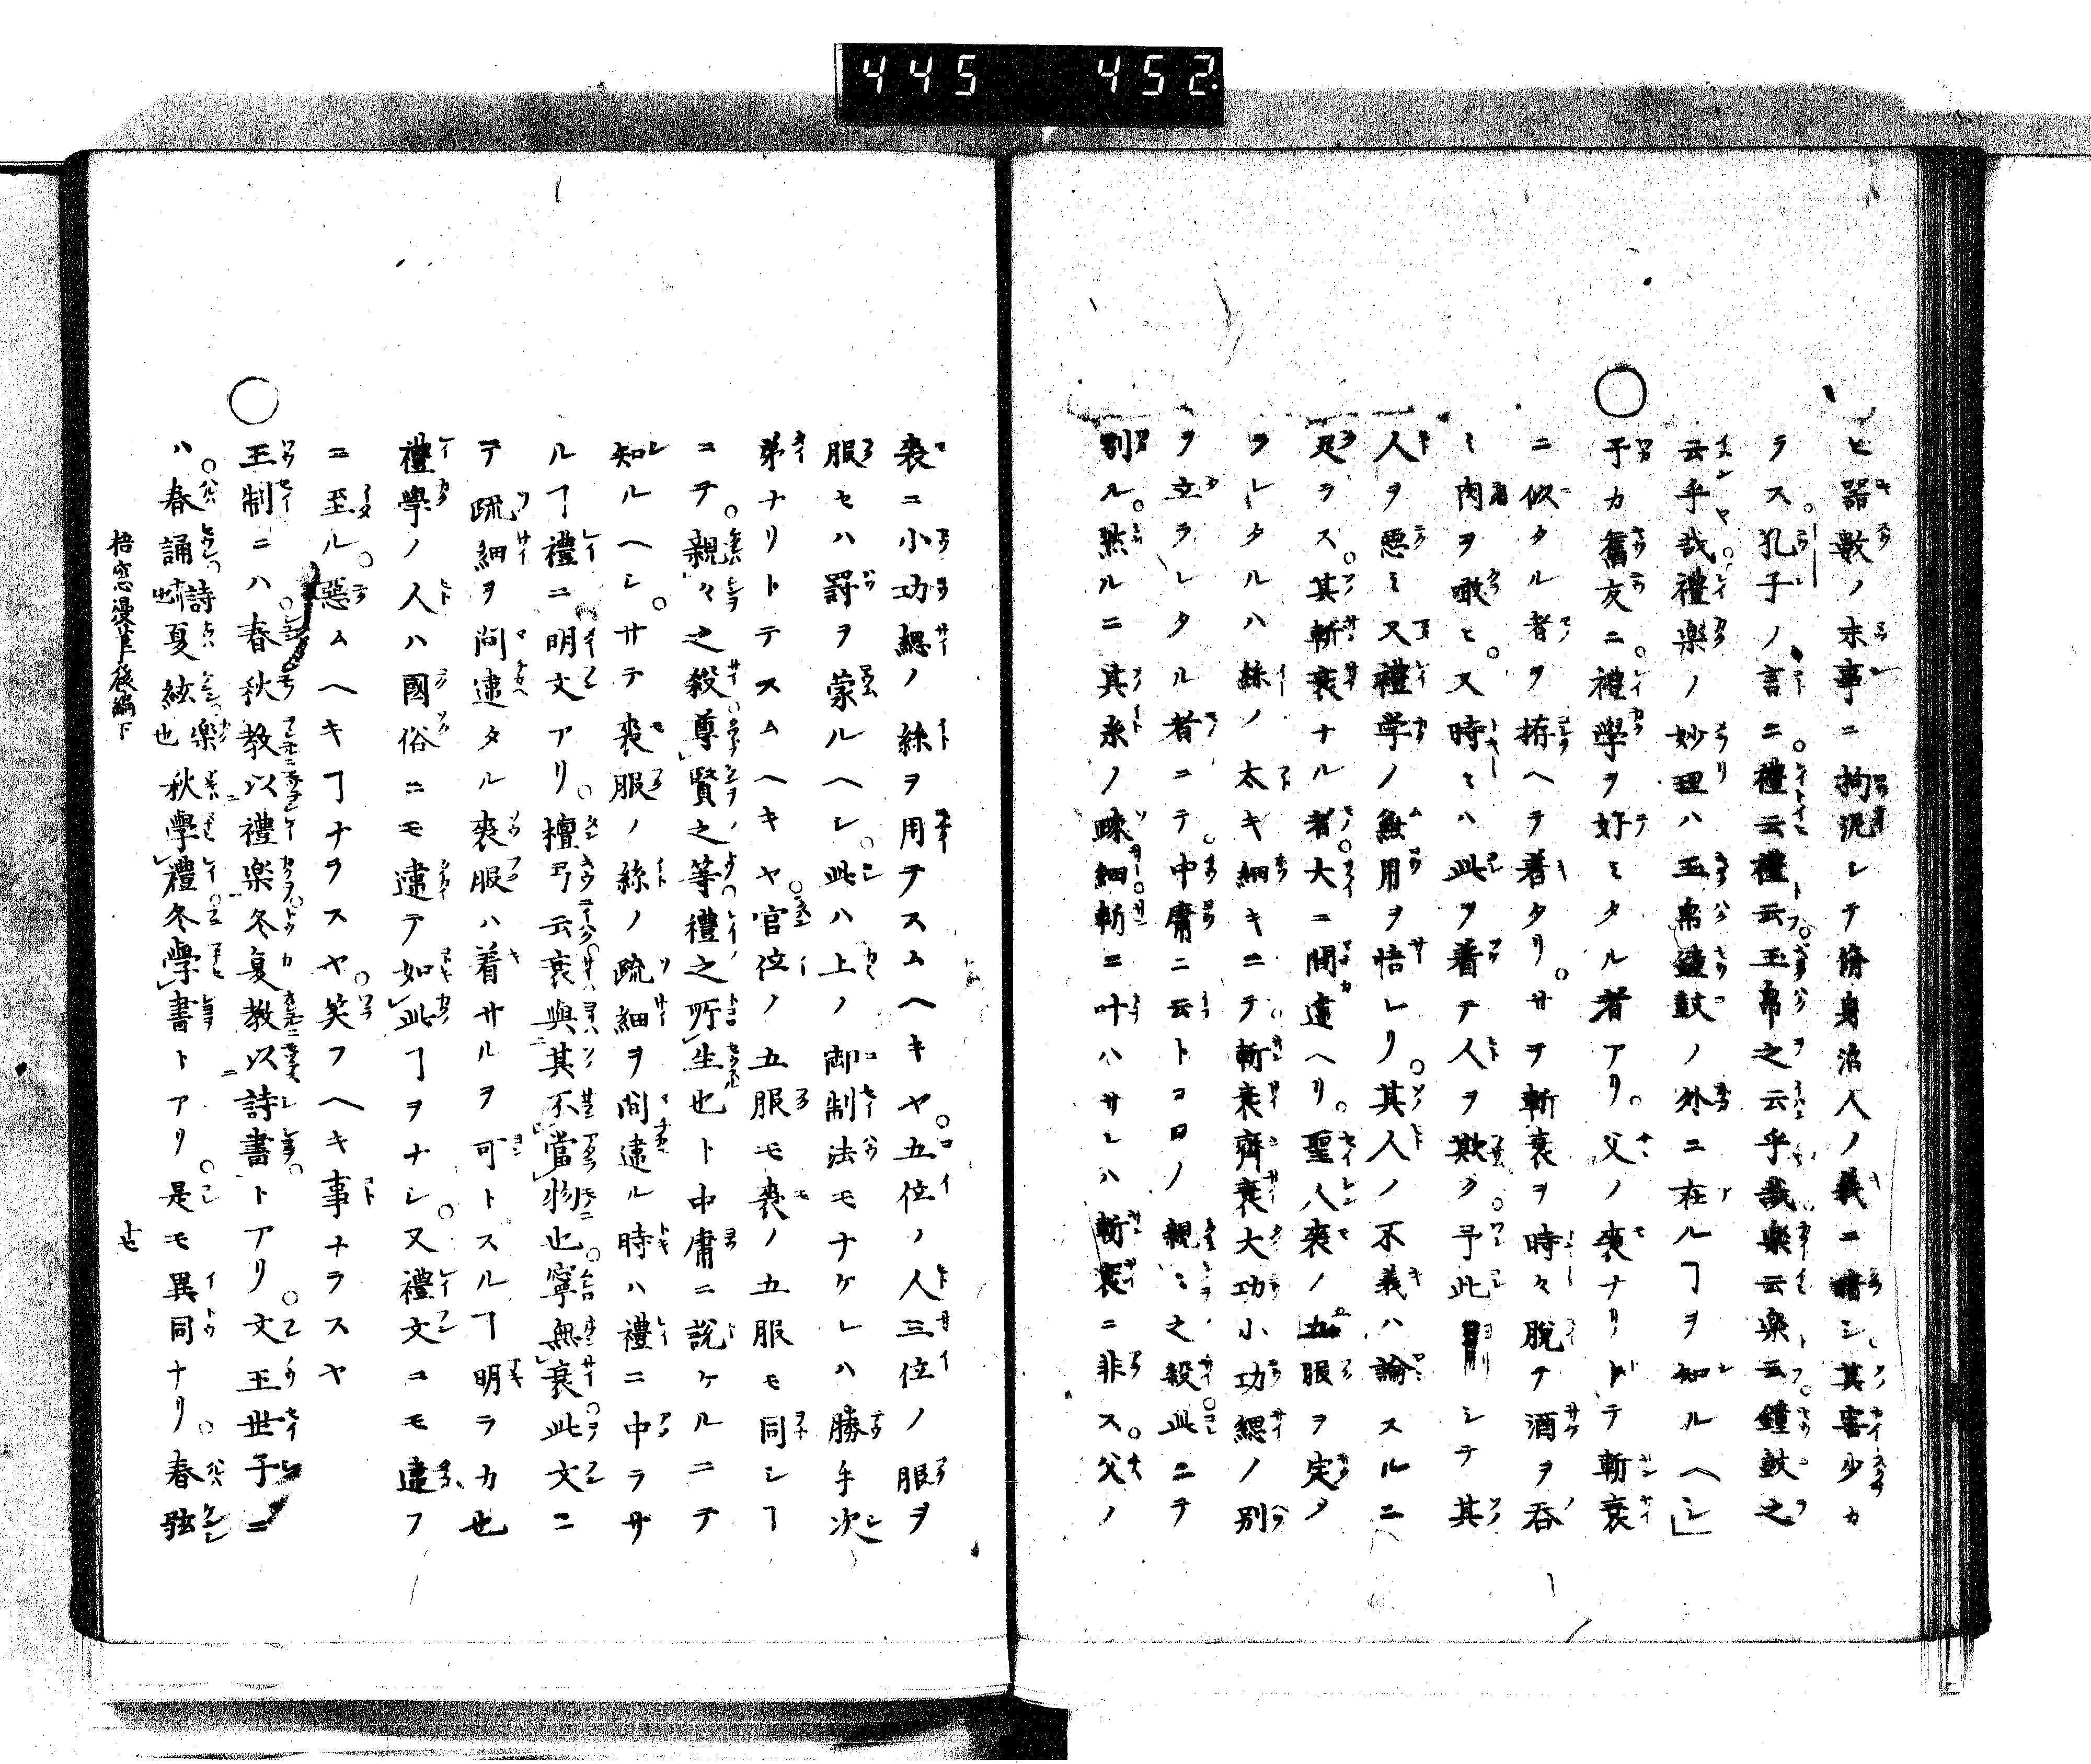 445 452
ヒ器數ノ末事ニ拘泥シテ脩身治人ノ義ニ暗シ其害少カ
ラス。孔子ノ言ニ禮云禮云玉帛之云乎哉樂云樂云鐘鼓之
云乎哉禮樂ノ妙理ハ玉帛鐘鼓ノ外ニ在ルヿヲ知ルヘシ」
○予カ舊友ニ禮學ヲ好ミタル者アリ。父ノ喪ナリトテ斬衰
ニ似タル者ヲ拵ヘラ着タリ。サヲ斬衰ヲ時々脱テ酒ヲ呑
ミ肉ヲ噉ヒ。又時ミハ此ヲ着テ人ヲ欺ク。予此ヨリシテ其
人ヲ惡ミ又禮学ノ無用ヲ悟レリ。其人ノ不義ハ論スルニ
足ラス。其斬衰ナル者。大ニ間違ヘリ。聖人喪ノ五服ヲ定メ
ヲレタルハ絲ノ太キ細キニテ斬衰齊衰大功小功緦ノ別
ヲ立ラレタル者ニテ。中庸ニ云トコロノ親ミ之殺此ニテ
別ル。然ルニ其糸ノ疎細斬ニ叶ハサレハ斬衰ニ非ス。父ノ
喪ニ小功緦ノ絲ヲ用テスムヘキヤ。五位ノ人三位ノ服ヲ
服セハ罸ヲ蒙ルヘシ。此ハ上ノ御制法モナケレハ勝手次
弟ナリトテスムヘキヤ。官位ノ五服モ喪ノ五服モ同シヿ
ニテ。親々之殺尊賢之等禮之所生也ト中庸ニ説ケルニテ
知ルヘシ。サテ喪服ノ絲ノ疏細ヲ間違ル時ハ禮ニ中ラサ
ルヿ禮ニ明文アリ。檀弓云衰與其不當物也寧無衰此文ニ
テ疏細ヲ間違タル喪服ハ着サルヲ可トスルヿ明ラカ也
禮學ノ人ハ國俗ニモ違テ如此ヿヲナシ。又禮文ニモ違フ
ニ至ル。惡ムヘキヿナラスヤ。笑フヘキ事ナラスヤ
○王制ニハ春秋教以禮樂冬夏教以詩書トアリ。文王世子ニ
ハ春誦詩也夏絃樂也秋學禮冬學書トアリ。是モ異同ナリ。春弦
梧窓漫筆後編下
十七